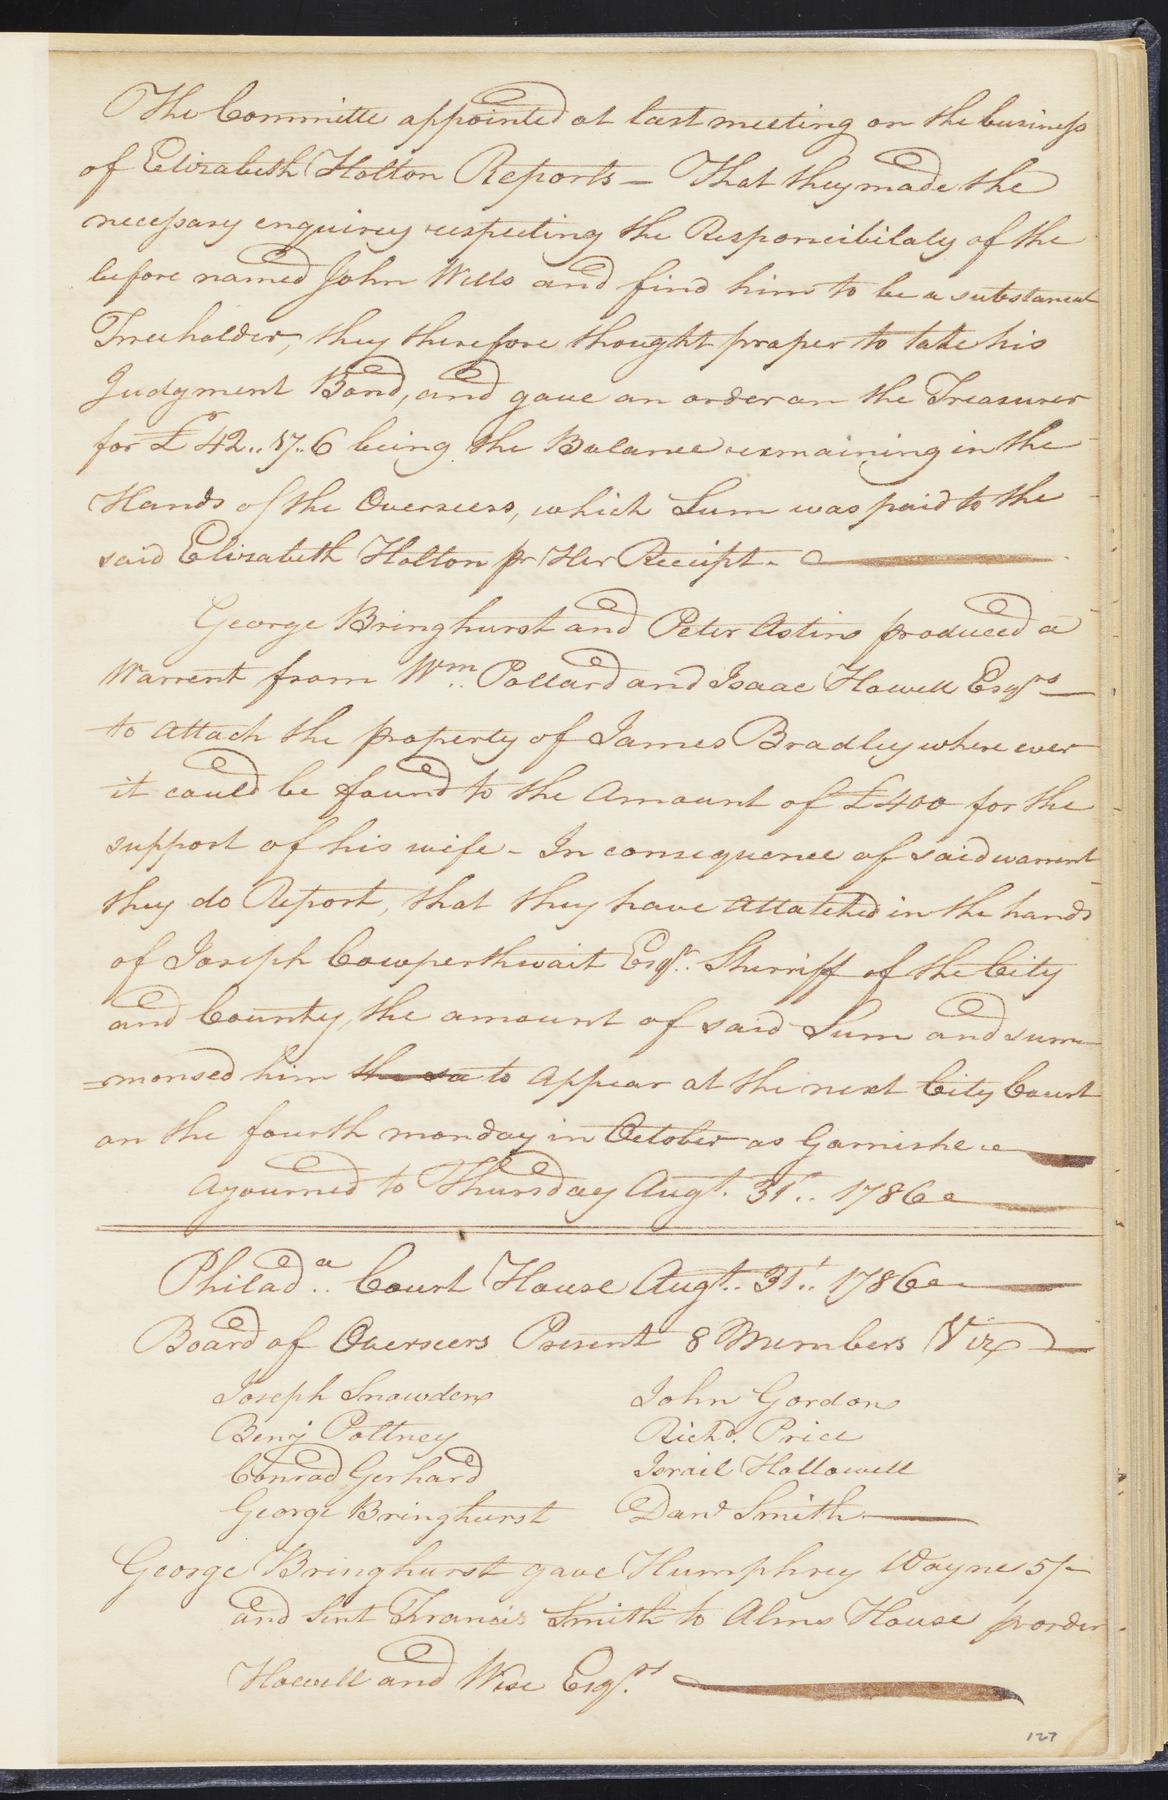 The Committe appointed at last meeting on the business
of Elizabeth Holton Reports — That they made the
necessary enquirey respecting the Responcibilaty of the
before named John Wells and find him to be a substancial
Freeholder, they therefore thought proper to take his
Judgment Bond, and gave an order on the Treasurer
for £42..17..6 being the Balance remaining in the
Hands of the Overseers, which Sum was paid to the
said Elizabeth Holton pr Her Receipt.
George Bringhurst and Peter Astins produced a
Warrent from Wm.. Pollard and Isaac Howell Esqrs
to Attach the property of James Bradley where ever
it could be found to the Amount of £400 for the
support of his wife - In consequence of said warrent
they do Report, that they have Attatched in the hands
of Joseph Cowperthwait Esqr.. Sherriff of the City
and County, the amount of said Sum and sum
=monsed him the sa to Appear at the next City Court
on the fourth monday in October as Garnishee
Ajourned to Thursday Augt. 31t.. 1786
Philada.. Court House Augt.. 31t.. 1786
Board of Overseers Present 8 Members Viz
Joseph Snowden John Gordon
Benj Poltney Richd. Price
Conrad Gerhard Israil Hollowell
George Bringhurst Danl Smith
George Bringhurst gave Humphrey Wayne 5/-
and sent Francis Smith to Alms House pr order
Howell and Wise Esqrs.
127